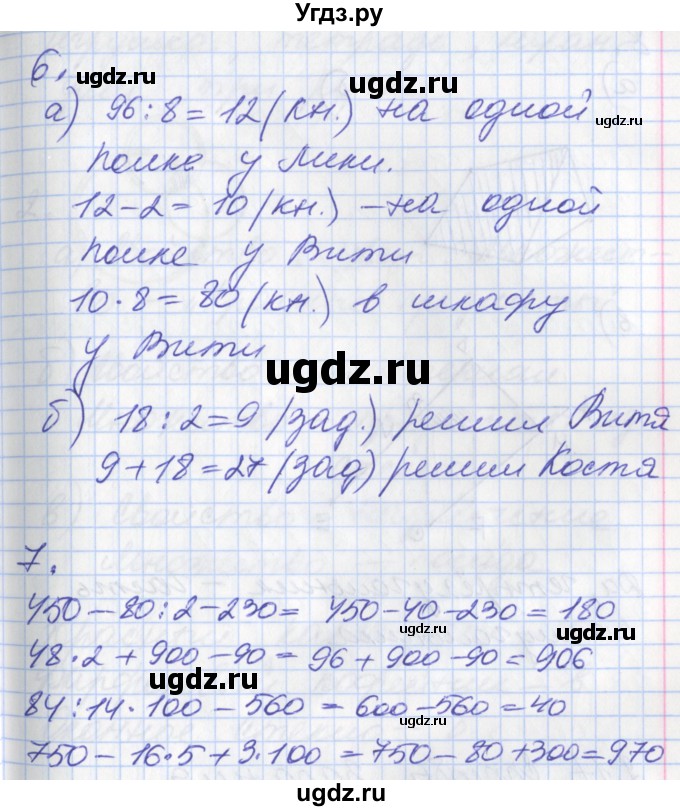 Угдз.ру
6.
ugdz.ru ugdz.ru
а) 96:8=12(кн.) на одной
ugdz.ru
полке у Лики.
12-2=10(кн.) - на одной
полке у Вити
10·8=80(кн.) в шкафу
у Вити
ugdz.ru
б) 18:2=9 (зад.) решил Витя
9+18=27 (зад) решил Костя
ugdz.ru
7.
ugdz.ru ugdz.ru
450-80:2-230= 450-40-230=180
ugdz.ru
48·2+900-90=96+900-90=906
ugdz.ru
84:14·100-560=600-560=40
ugdz.ru
750-16·5+3·100=750-80+300=970